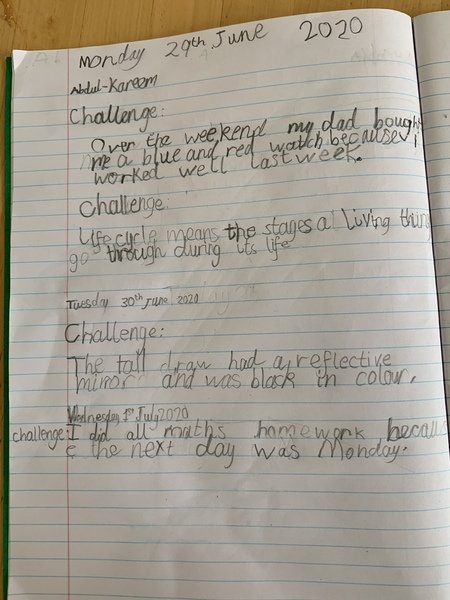 Monday 29th June 2020
Abdul-Kareem
Challenge:
Over the weekend my dad bought
me a blue and red watch because I
worked well last week.
Challenge:
Life cycle means the stages a living thing
go through during its life
Tuesday 30th June 2020
Challenge:
The tall draw had a reflective
mirror and was black in colour.
Wednesday 1st July 2020
challenge: I did all maths homework becaus
e the next day was Monday.